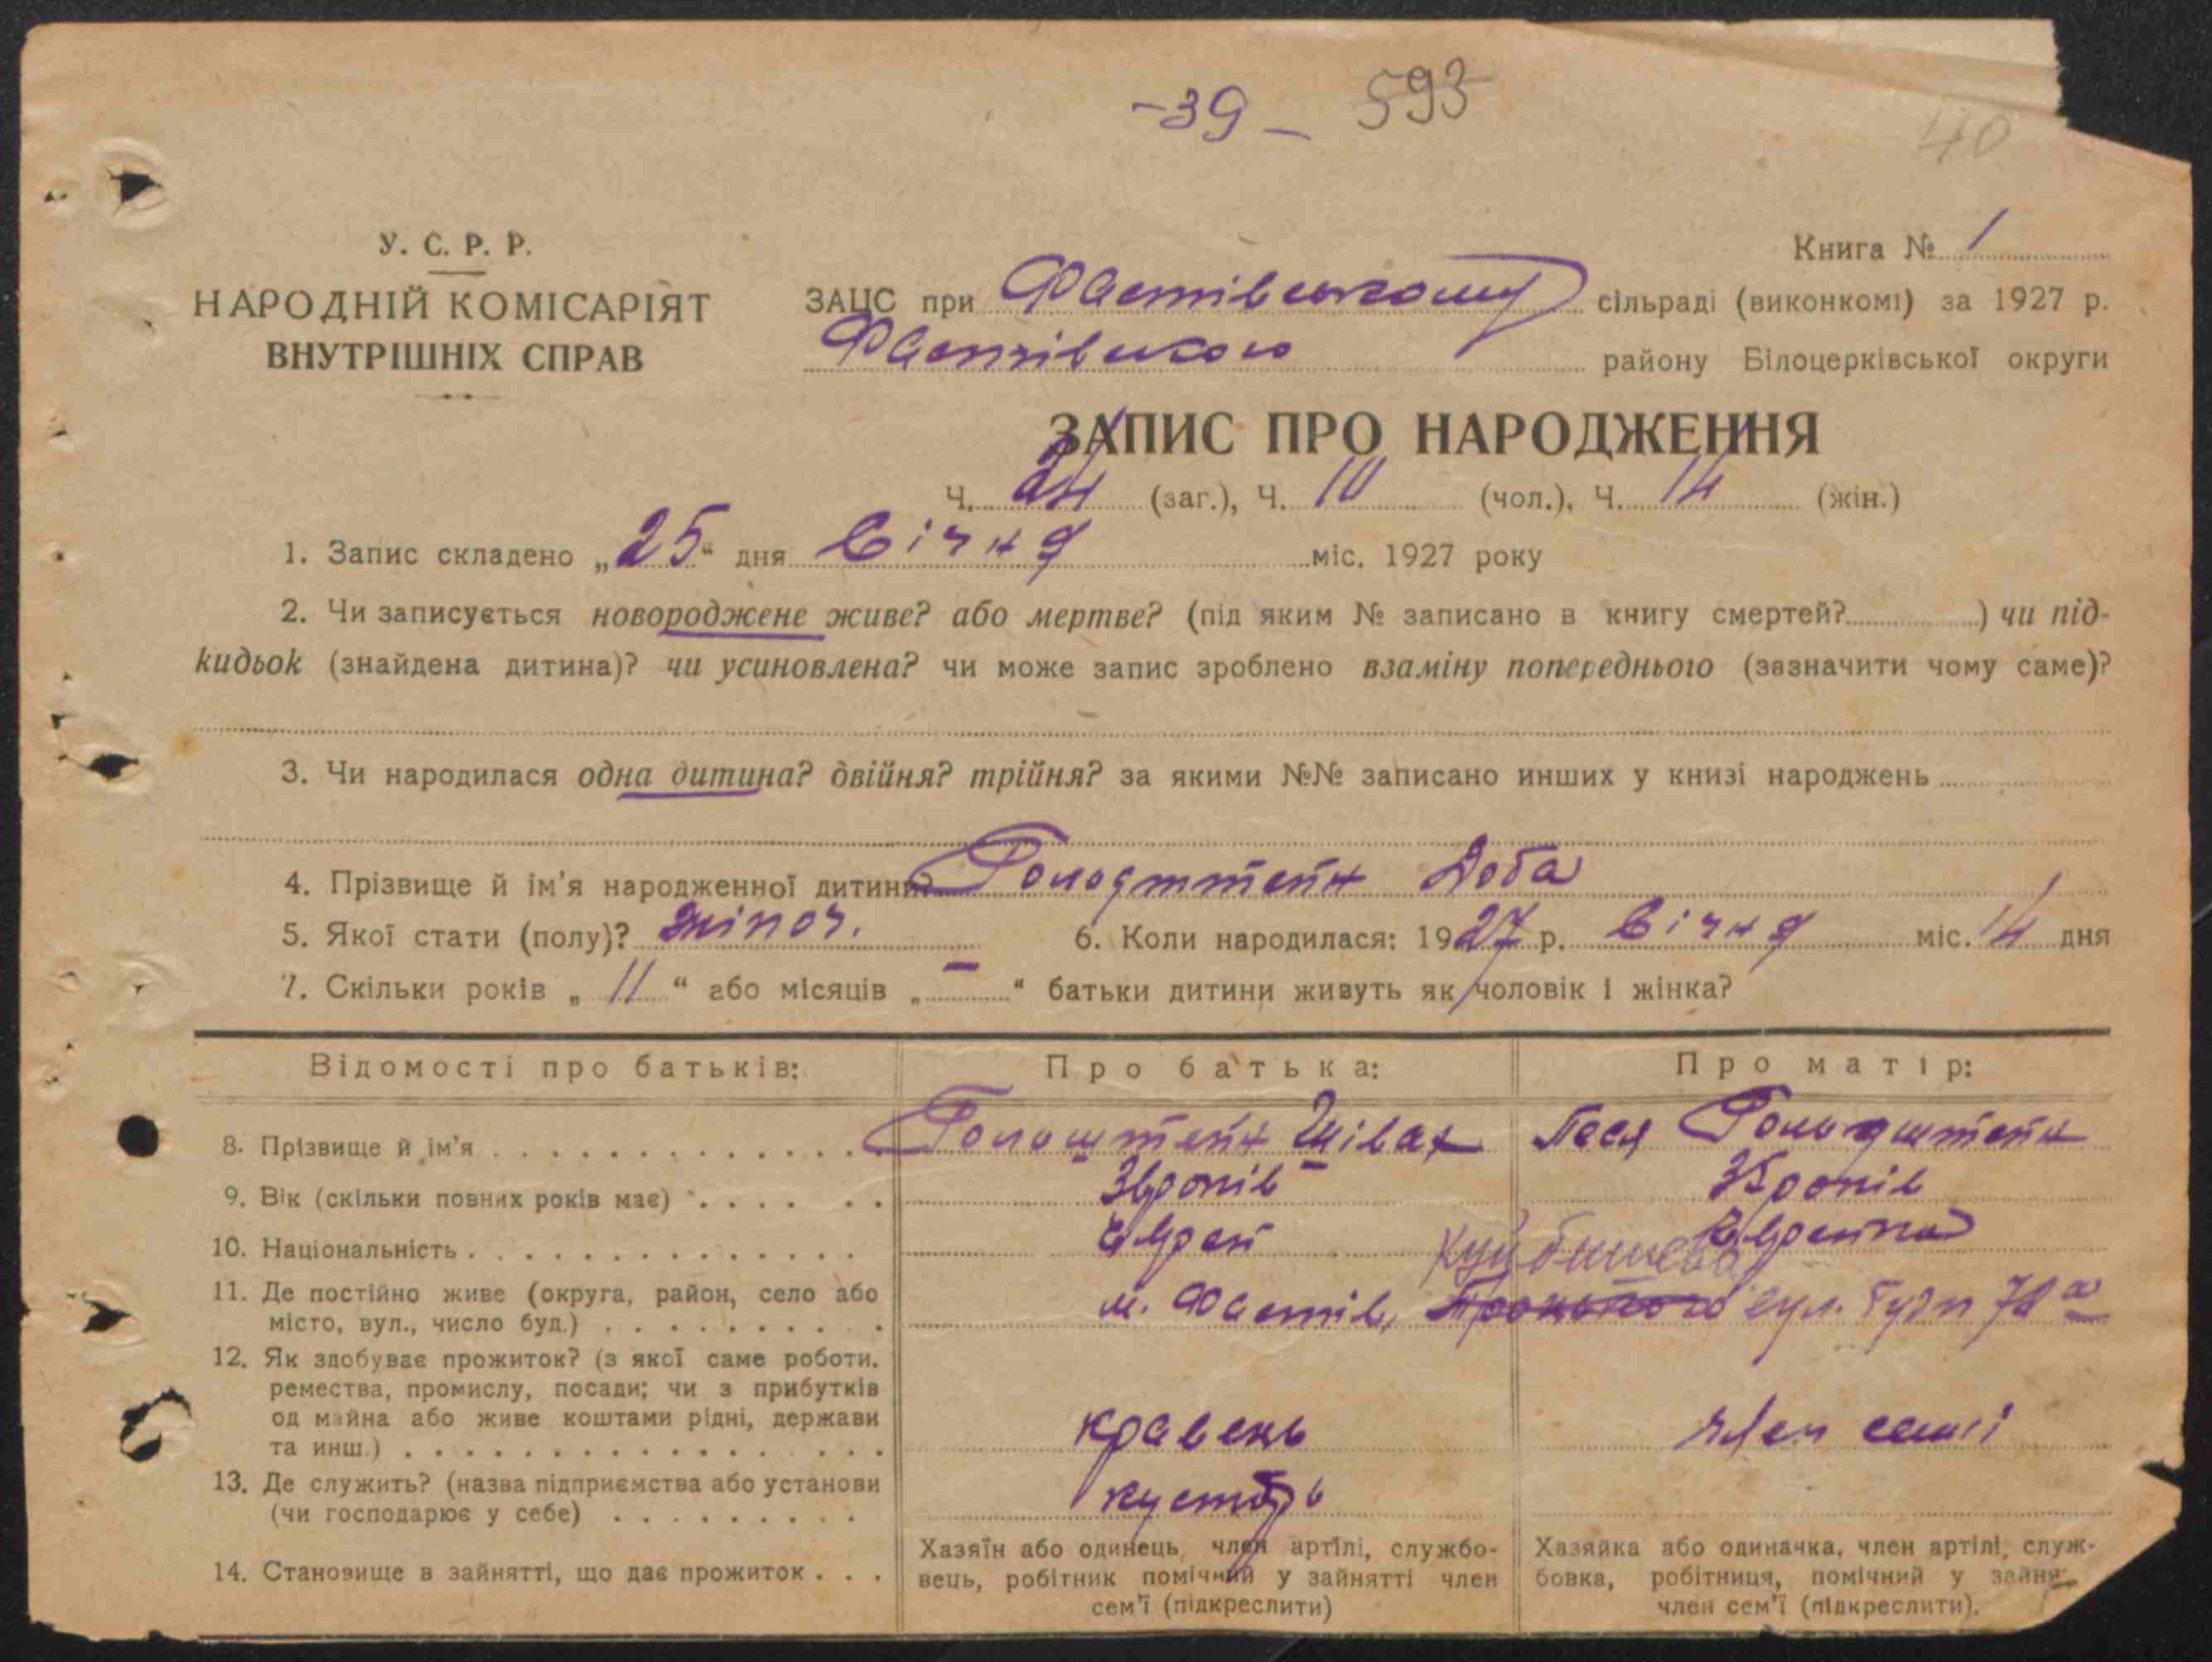 -39- 593
40
У. С. Р. Р.
НАРОДНІЙ КОМІСАРІЯТ
ВНУТРІШНІХ СПРАВ
Книга № 1
ЗАЦС при Фастівському сільраді (виконкомі) за 1927 р.
Фастівського району Білоцерківської округи
ЗАПИС ПРО НАРОДЖЕННЯ
Ч. 24 (заг.), Ч. 10 (чол.), Ч. 14 (жін.)
1. Запис складено „25“ дня Січня міс. 1927 року
2. Чи записується новороджене живе? або мертве? (під яким № записано в книгу смертей?) чи під-
кидьок (знайдена дитина)? чи усиновлена? чи може запис зроблено взаміну попереднього (зазначити чому саме)?
3. Чи народилася одна дитина? двійня? трійня? за якими №№ записано инших у книзі народжень
4. Прізвище й ім'я народженної дитини? Голодштейн Доба
5. Якої стати (полу)? жіноч. 6. Коли народилася: 1927 р. Січня міс. 14 дня
7. Скільки років „ 11 “ або місяців „ — “ батьки дитини живуть як чоловік і жінка?
Відомості про батьків: Про батька: Про матір:
8. Прізвище й ім'я Голоштейн Шівах Песя Голодштейн
9. Вік (скільки повних років має) років 35 років
10. Національність Єврей Єврейка
Куйбишева
11. Де постійно живе (округа, район, село або
місто, вул., число буд.) м. Фастів, Троцького вул.
12. Як здобуває прожиток? (з якої саме роботи,
ремества, промислу, посади; чи з прибутків
од майна або живе коштами рідні, держави
та инш.) кравець член семії
13. Де служить? (назва підприємства або установи
(чи господарює у себе) кустарь
14. Становище в зайнятті, що дає прожиток
Хазяїн або одинець, член артілі, службо-
вець, робітник помічний у зайнятті член
сем'ї (підкреслити)
Хазяйка або одиначка, член артілі, служ-
бовка, робітниця, помічний у зайня
член сем'ї (підкреслити).